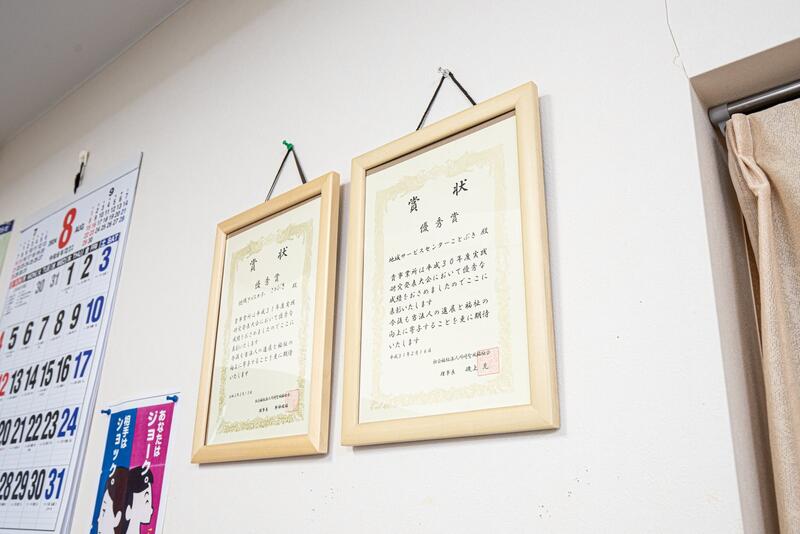 8
AUG
2024
9
THU
FRI
SAT
30 31 1 2 3
4 5 6 7 8 9 10
12 13 14 15 16 17
20 21 22 23 24
28 29 30 31
あなたは
ジョーク
相手は
ショック
賞 状
優秀賞
殿
貴事業所は平成31年度実践
研究発表大会において優秀な
成績をおさめましたのでここに
表彰いたします
今後も当法人の進展と福祉の
向上に寄与することを更に期待
いたします
理事長
賞 状
優秀賞
地域サービスセンターことぶき 殿
貴事業所は平成30年度実践
研究発表大会において優秀な
成績をおさめましたのでここに
表彰いたします
今後も当法人の進展と福祉の
向上に寄与することを更に期待
いたします
平成31年2月16日
理事長 磯上 充